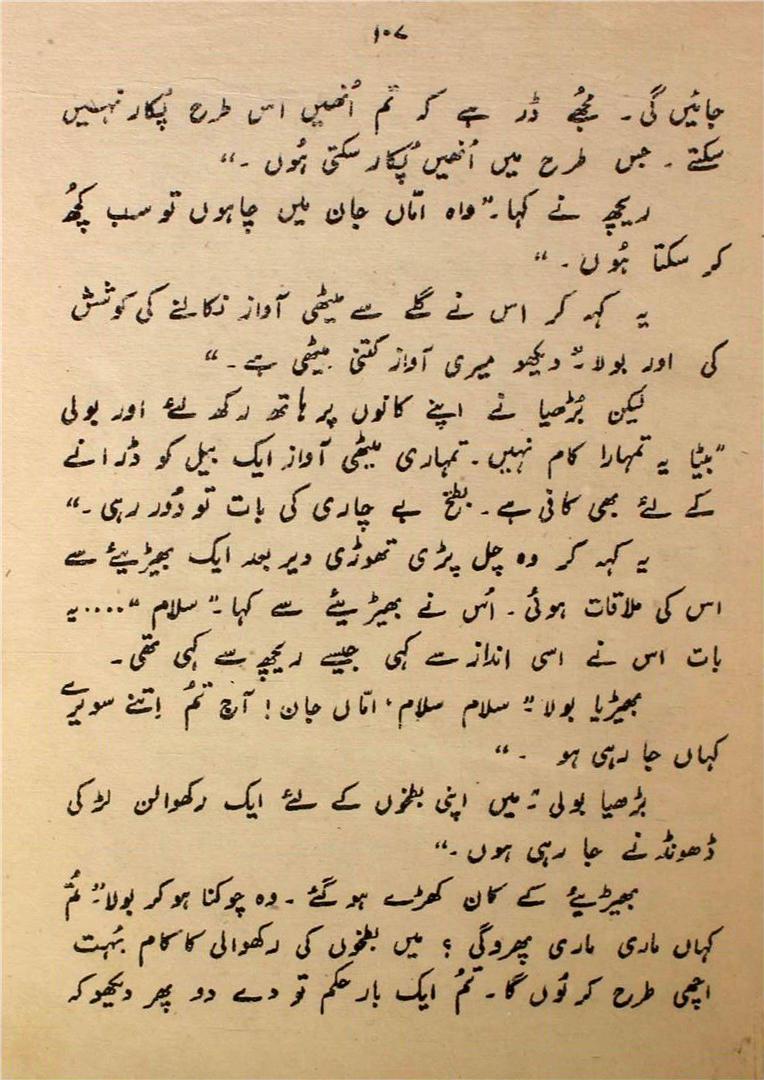 ۱۰۷
جائیں گی۔ مُجھے ڈر ہے کہ تم اُنھیں اس طرح پُکار نہیں
سکتے ۔ جس طرح میں اُنھیں پُکار سکتی ہُوں ۔"
ریچھ نے کہا۔" واہ امّاں جان میں چاہوں تو سب کچھُ
کر سکتا ہُوں ۔ "
یہ کہہ کر اس نے گلے سے میٹھی آواز نکالنے کی کوشش
کی اور بولا۔" دیکھو میری آواز کتنی میٹھی ہے ۔ "
لیکن بُڑھیا نے اپنے کانوں پر ہاتھ رکھ لئے اور بولی
"بیٹا یہ تمہارا کام نہیں ۔ تمہاری میٹھی آواز ایک بیل کو ڈرانے
کے لئے بھی کافی ہے ۔ بطخ بے چاری کی بات تو دُور رہی ۔"
یہ کہہ کر وہ چل پڑی تھوڑی دیر بعد ایک بھیڑیئے سے
اس کی ملاقات ہوئی ۔ اُس نے بھیڑیئے سے کہا ۔" سلام "....یہ
بات اس نے اسی انداز سے کہی جیسے ریچھ سے کہی تھی ۔
بھیڑیا بولا ۔" سلام سلام ، امّاں جان ! آج تمُ اِتنے سویرے
کہاں جا رہی ہو ۔ "
بڑھیا بولی ۔" میں اپنی بطخوں کے لئے ایک رکھوالن لڑکی
ڈھونڈنے جا رہی ہوں ۔"
بھیڑیئے کے کان کھڑے ہو گئے ۔ وہ چوکنا ہو کر بولا ۔" تُم
کہاں ماری ماری پھروگی ؟ میں بطخوں کی رکھوالی کا کام بہُت
اچھی طرح کر لُوں گا ۔ تمُ ایک بار حکم تو دے دو پھر دیکھو کہ